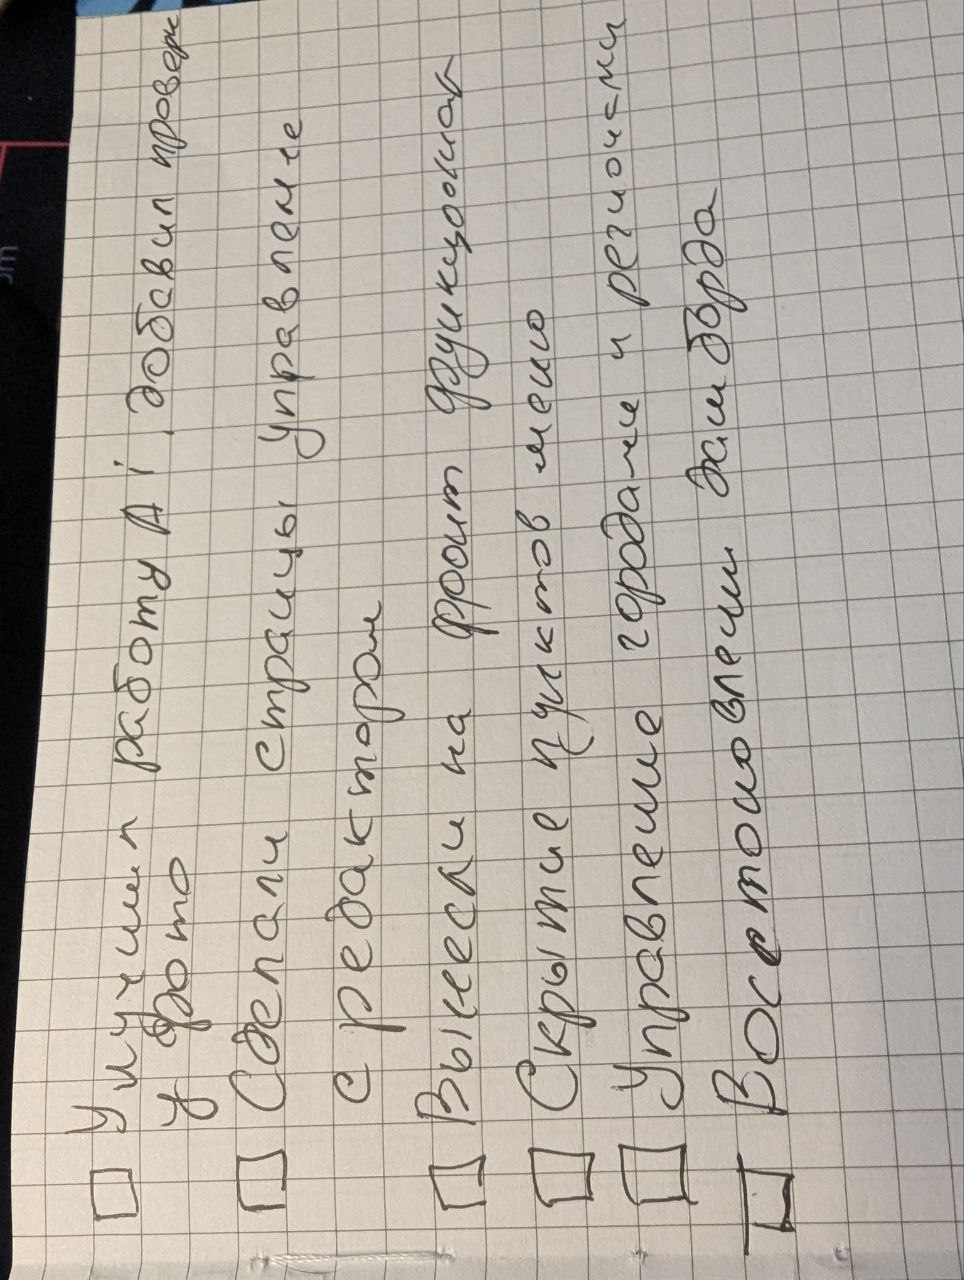 Улучшил работу Ai, добавил проверк
у фото
Сделали страицы управление
с редактором
Вынесли на фронт функционал
Скрытие пунктов меню
Управление городами и регионами
Востоновлени дашборда